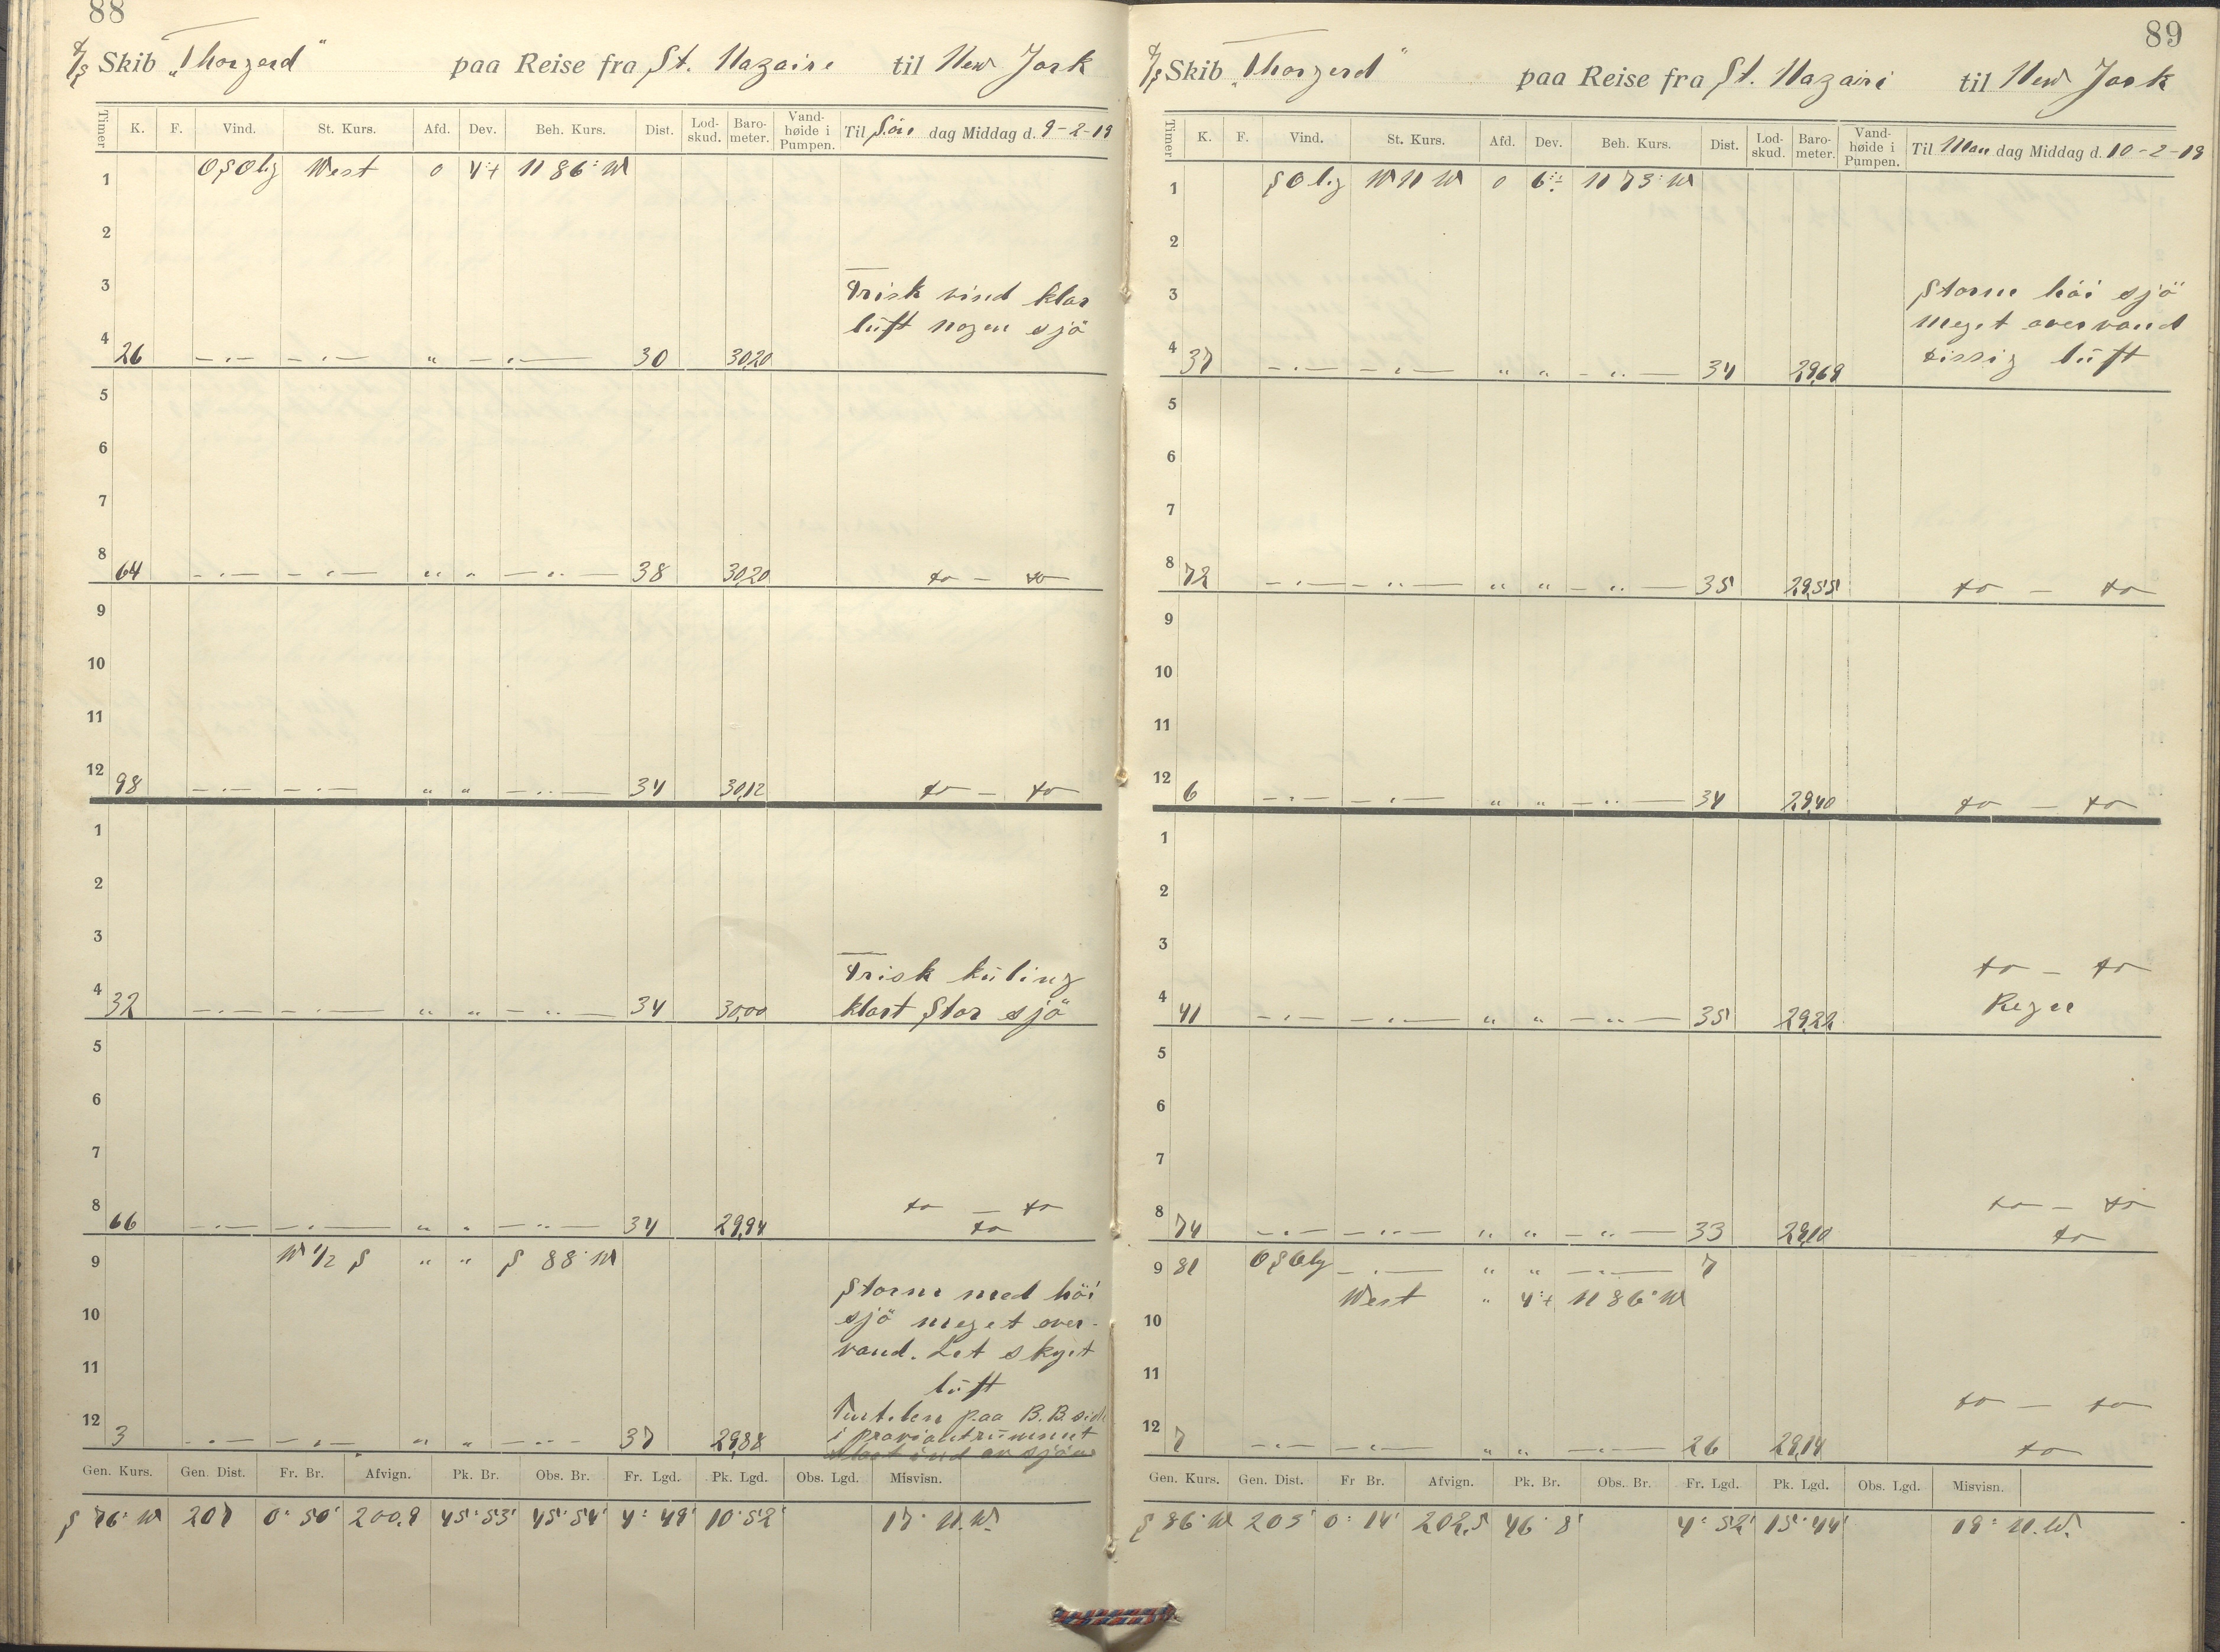 88
S/S Skib „Thorgerd" paa Reise fra St. Nazaire til New York
Timer K. F. Vind. St. Kurs. Afd. Dev. Beh. Kurs. Dist. Lod-skud. Baro-meter. Vand-høide i Pumpen. Til Søn dag Middag d. 9-2-19
1 OSOlig West 0 4°+ N 86° W
2
3 Frisk vind klar
luft nogen sjö
4 26 — „ — — „ — „ — „ — 30 30,20
5
6
7
8 64 — „ — — „ — „ „ — „ — 38 30,20 do — do
9
10
11
12 98 — „ — — „ — „ „ — „ — 34 30,12 do — do
1
2
3 Frisk küling
4 32 — „ — — „ — „ „ — „ — 34 30,00 klart Stor sjö
5
6
7
do — do
8 66 — „ — — „ — „ „ — „ — 34 29,94 do
9 W 1/2 S „ „ S 88° W
Storm med höi
10 sjö meget over-
vand. Let skyet
11 lüft
Ventilen paa B.B. side
12 3 — „ — — „ — „ „ — „ — 37 29,88 i proviantrümmet
ind av sjöen
Gen. Kurs. Gen. Dist. Fr. Br. Afvign. Pk. Br. Obs. Br. Fr. Lgd. Pk. Lgd. Obs. Lgd. Misvisn.
S 76° W 207 0° 50' 200,9 45° 53' 45° 54' 4° 49' 10° 52' 17° N.W.
89
S/S Skib „Thorgerd" paa Reise fra St. Nazaire til New York
Timer K. F. Vind. St. Kurs. Afd. Dev. Beh. Kurs. Dist. Lod-skud. Baro-meter. Vand-høide i Pumpen. Til Man dag Middag d. 10-2-19
1 SOlig WNW 0 6°+ N 73° W
2
3 Storm höi sjö
meget overvand
4 37 — „ — — „ — „ „ — „ — 34 29,69 dissig lüft
5
6
7
8 72 — „ — — „ — „ „ — „ — 35 29,55 do — do
9
10
11
12 6 — „ — — „ — „ „ — „ — 34 29,40 do — do
1
2
3 do — do
4 41 — „ — — „ — „ „ — „ — 35 29,22 Regn
5
6
7
do — do
8 74 — „ — — „ — „ „ — „ — 33 29,10 do
9 81 OSOlig — „ — „ „ — „ — 7
West „ 4°+ N 86° W
10
11
do — do
12 7 — „ — — „ — „ „ — „ — 26 29,14 do
Gen. Kurs. Gen. Dist. Fr Br. Afvign. Pk. Br. Obs. Br. Fr. Lgd. Pk. Lgd. Obs. Lgd. Misvisn.
S 86° W 203 0° 14' 202,5 46° 8' 4° 52' 15° 44' 19° N.W.